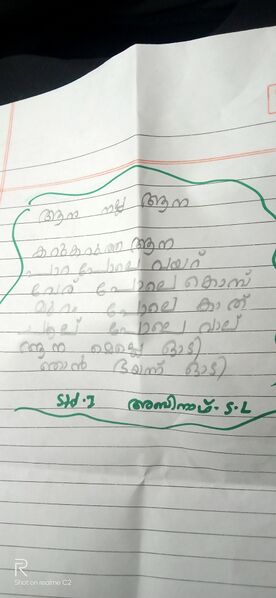 ആന നല്ല ആന
കറുകറുത്ത ആന
പാറ പോലെ വയറ്
വേര് പോലെ കൊമ്പ്
മുറം പോലെ കാത്
ചൂല് പോലെ വാല്
ആന മെല്ലെ ഓടി
ഞാൻ ഭയന്ന് ഓടി
Std. I അഭിനാഥ്. S. L
Shot on realme C2